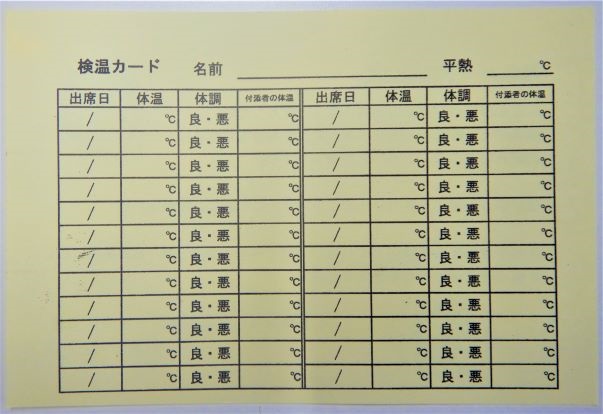 検温カード 名前 平熱 ℃
出席日 体温 体調 付添者の体温 出席日 体温 体調 付添者の体温
/ ℃ 良・悪 ℃ / ℃ 良・悪 ℃
/ ℃ 良・悪 ℃ / ℃ 良・悪 ℃
/ ℃ 良・悪 ℃ / ℃ 良・悪 ℃
/ ℃ 良・悪 ℃ / ℃ 良・悪 ℃
/ ℃ 良・悪 ℃ / ℃ 良・悪 ℃
/ ℃ 良・悪 ℃ / ℃ 良・悪 ℃
/ ℃ 良・悪 ℃ / ℃ 良・悪 ℃
/ ℃ 良・悪 ℃ / ℃ 良・悪 ℃
/ ℃ 良・悪 ℃ / ℃ 良・悪 ℃
/ ℃ 良・悪 ℃ / ℃ 良・悪 ℃
/ ℃ 良・悪 ℃ / ℃ 良・悪 ℃
/ ℃ 良・悪 ℃ / ℃ 良・悪 ℃